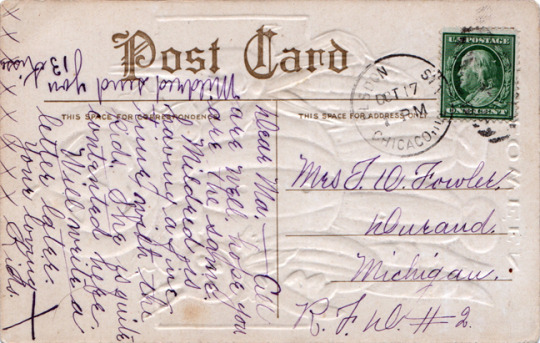 Post Card
THIS SPACE FOR CORRESPONDENCE
THIS SPACE FOR ADDRESS ONLY
U.S. POSTAGE
OCT 17
CHICAGO, ILL
Mrs F. D. Fowler.
Durand.
Michigan.
R. F. D. #2.
Dear Ma, — All
are well, hope you
are the same.
Mildred is
having a fine
time with the
kids. She is quite
contented here.
Will write a
letter later.
Your loving
Mildred send you
13 kisses
X X X X X X X X X X X X X